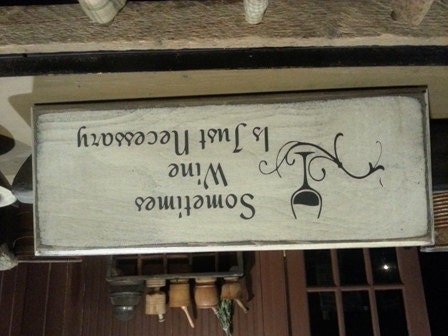 Sometimes
Wine
Is Just Necessary